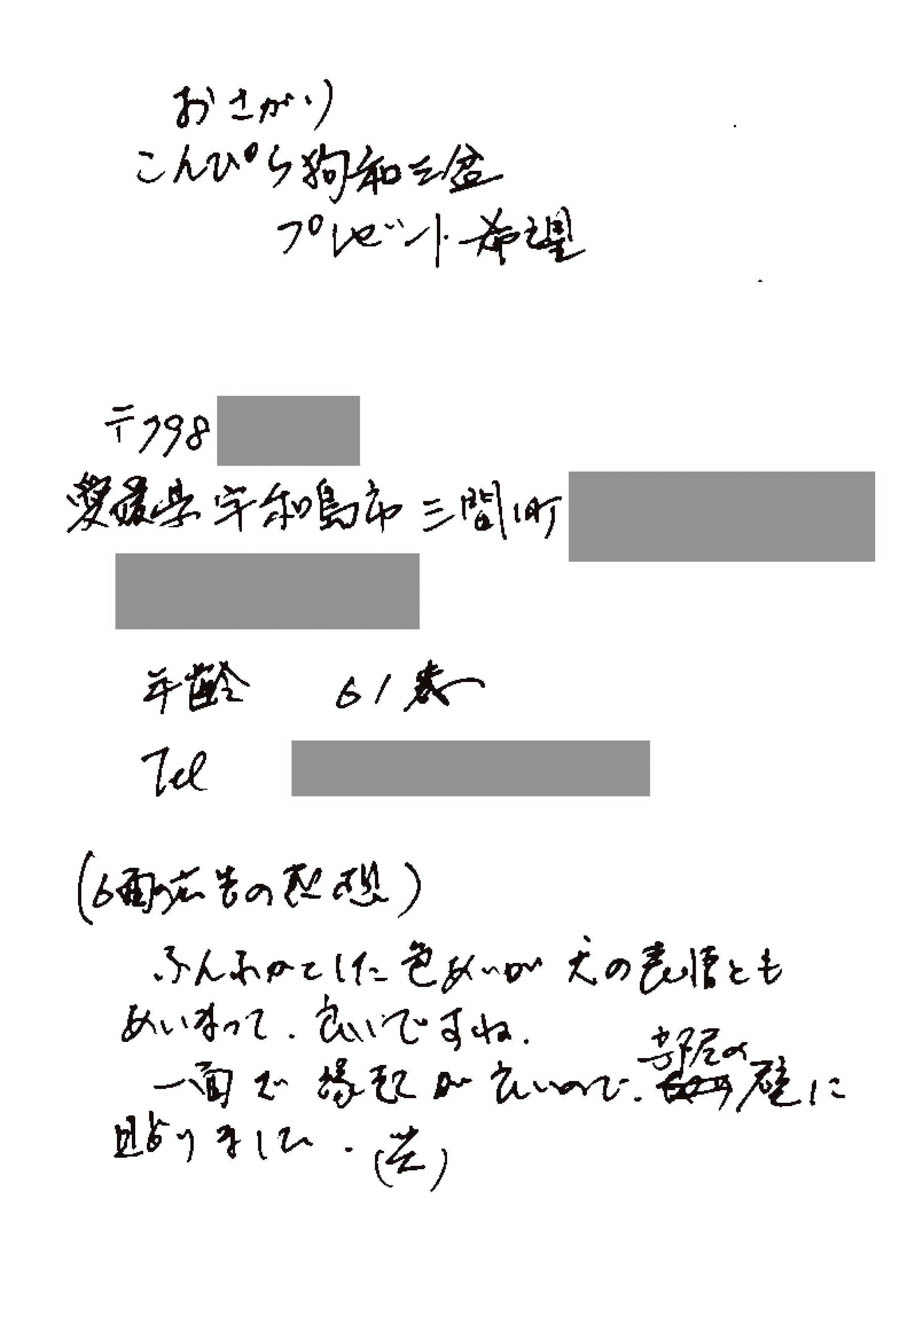 おさがり
こんぴら狗和三盆
プレゼント希望
〒798
愛媛県宇和島市三間町
年齢 61歳
Tel
(6面広告の感想)
ふんわかとした色めいが犬の表情とも
めいまって、良いですね。
一面で縁起が良いので、部屋の壁に
貼りました。(笑)